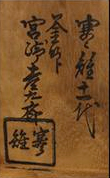 寒雉十 代
釜師
宮崎彦九郎
寒雉